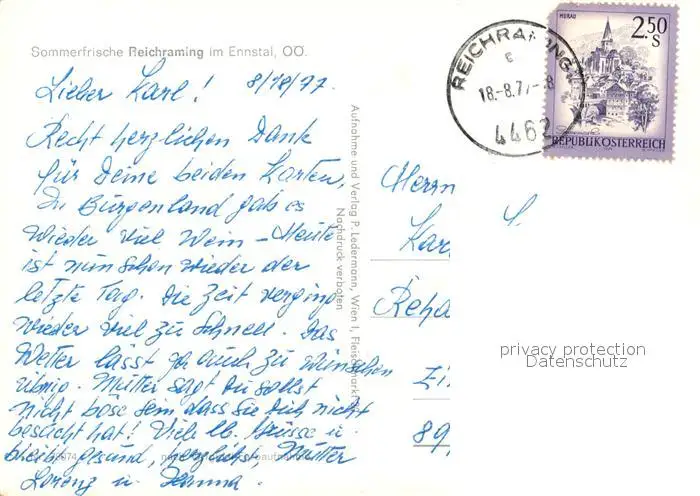 Sommerfrische Reichraming im Ennstal, OÖ.
Lieber Karl! 8/18/77.
Recht herzlichen Dank
für Deine beiden Karten,
Im Burgenland gab es
wieder viel Wein – Heute
ist nun schon wieder der
letzte Tag. Die Zeit verging
wieder viel zu schnell. Das
Wetter lässt ja auch zu wünschen
übrig. Mutter sagt Du sollst
nicht böse sein dass sie Dich nicht
besucht hat! Viele lb. Grüsse u.
bleib gesund, herzlichst, Mutter
Lorenz u.
Aufnahme und Verlag P. Ledermann, Wien I, Fleischmarkt
Nachdruck verboten
REICHRAMING
18.-8.77-8
4462
MURAU
2.50
S
REPUBLIK ÖSTERREICH
Herrn
Kar
Reha
89
privacy protection
Datenschutz